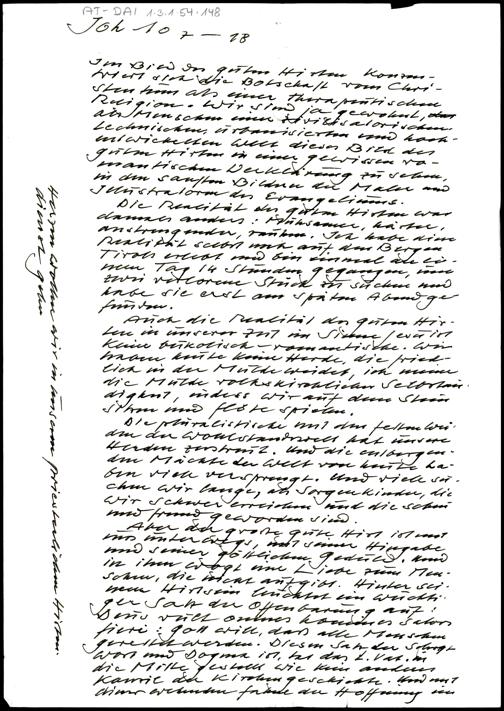 AT-DAI 1.3.1 54-148
Joh 10 7-18
Im Bild des guten Hirten konzen-
triert sich die Botschaft vom Chri-
stentum als einer therapeutischen
Religion. Wir sind ja gewohnt,
als Menschen einer zivilisatorischen
technischen, urbanisierten und hoch-
entwickelten Welt dieses Bild des
guten Hirten in einer gewissen ro-
mantischen Verklärung zu sehen,
in den sanften Bildern der Maler und
Illustratoren des Evangeliums.
Die Realität des guten Hirten war
damals anders: Mühsamer, härter,
anstrengender, rauher. Ich habe diese
Realität selbst noch auf den Bergen
Tirols erlebt und bin einmal an ei-
nem Tag 14 Stunden gegangen, um
zwei verlorene Stück zu suchen und
habe sie erst am späten Abend ge-
funden.
Auch die Realität des guten Hir-
ten in unserer Zeit im Sinne Jesu ist
keine bukolisch-romantische. Wir
haben heute keine Herde, die fried-
lich in der Mulde weidet, ich meine
die Mulde volkskirchlicher Selbstän-
digkeit, indess wir auf dem Stein
sitzen und Flöte spielen.
Die pluralistische mit den fetten Wei-
den der Wohlstandswelt hat unsere
Herden zerstreut. Und die
den Mächte der Welt von heute ha-
ben viele versprengt. Und viele su-
chen wir lange, als Sorgenkinder, die
wir schwer erreichen und die scheu
und fremd geworden sind.
Aber der große gute Hirt ist mit
uns unterwegs, mit seiner Hingabe
und seiner göttlichen Geduld. Und
in ihm wogt eine Liebe zum Men-
schen, die nicht aufgibt. Hinter sei-
nem Hirtsein leuchtet ein wuchti-
ger Satz der Offenbarung auf:
Deus vult omnes homines salvos
fieri: Gott will, dass alle Menschen
gerettet werden. Diesen Satz der Schrift
Wort und Dogma ist, hat das 2. Vat. in
die Mitte gestellt wie kein anderes
Konzil der Kirchengeschichte. Und mit
dieser wehenden Fahne der Hoffnung im
Herzen wollen wir in unserem priesterlichen Hirten-
dienst gehen